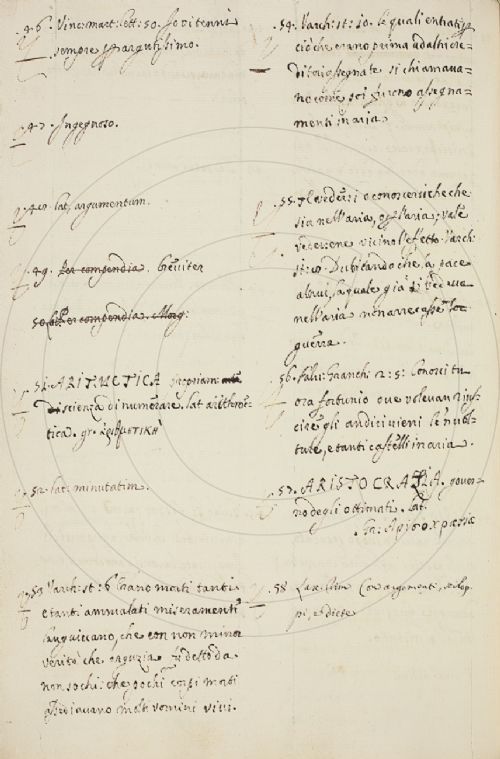 46. Vinc: mart: lett: 50. Io vi tenni
sempre p argutissimo.
47. Ingegnoso.
48. lat. argumentum.
49. Per compendia. breviter
50. Per compendia. Morg:
51. ARITMETICA
scienza di numerare. lat. arithme-
tica. gr. ἀριθμετικὴ
52. lat. minutatim.
53. Varch: st: 6. Erano morti tanti
e tanti ammalati miseramente
languivano, che con non minor
verità che arguzia fu detto da
non so chi: che pochi corpi morti
assediavano molti uomini vivi.
54. Varch: st: 10. le quali entrate
ciò che erano prima ad altri cre-
ditori assegnate si chiamava-
no come poi furono assegna-
menti in aria
55. Il vedersi o conoscersi che che
sia nell'aria, o p l'aria; vale
vedersene vicino l'effetto. Varch:
st: Dubitando che la pace
la quale già si vedeva
nell'aria non
guerra.
56. Palu: Franch: 2: 5: Conosci tu
ora fortunio ove volevan rius-
cire gli andirivieni le nuvi-
late, e tanti castelli in aria.
57. ARISTOCRAZIA. gover-
no degli ottimati. lat.
58 Con argomenti, scilop-
pi, e diete